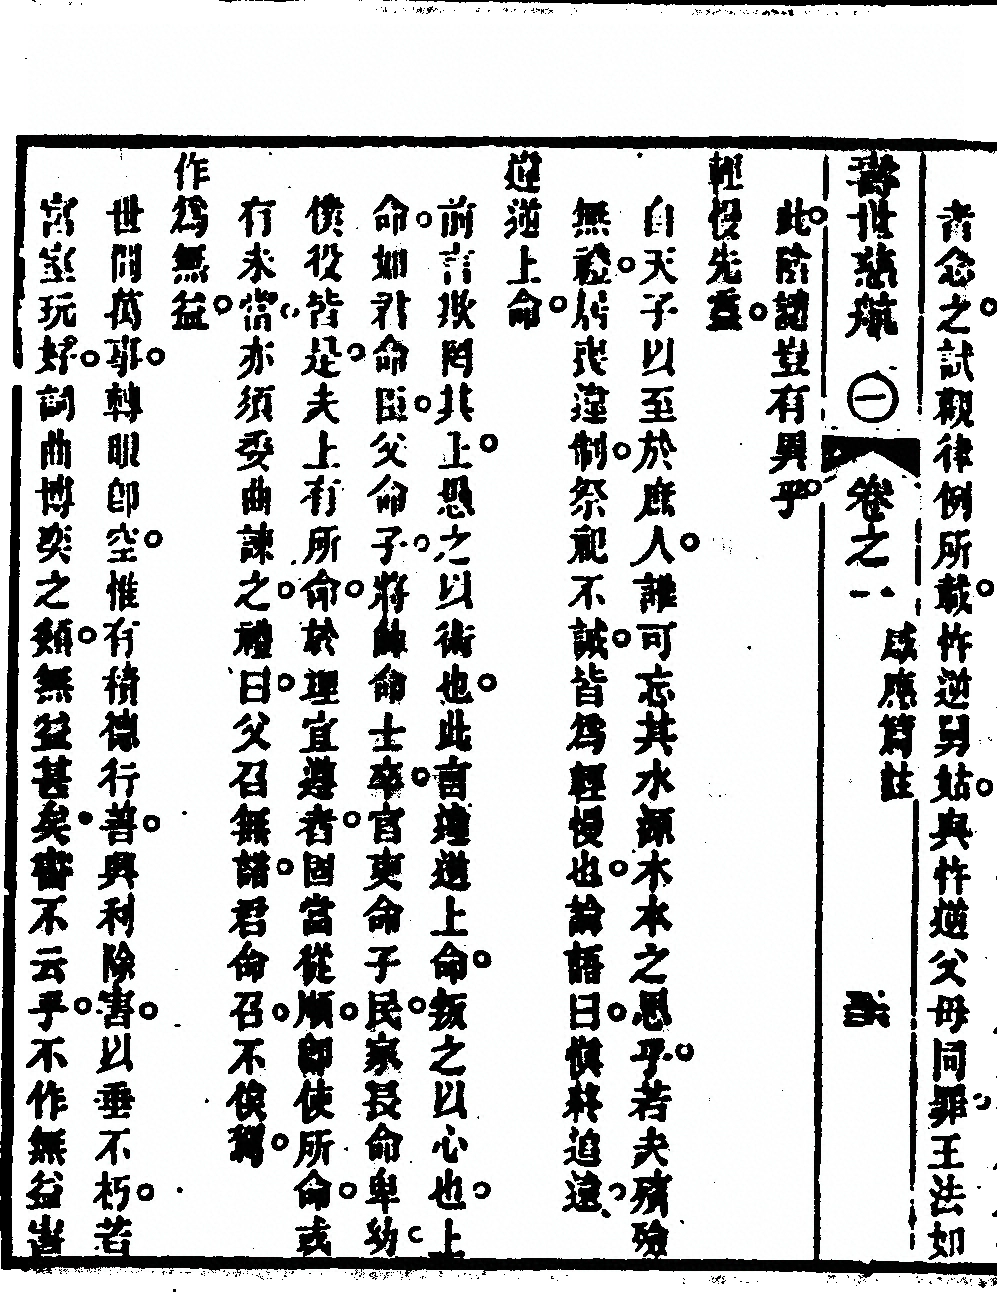 者念之試觀律例所載忤逆舅姑與忤逆父母同罪王法如
壽世慈航 一 卷之一 感應篇註
此陰譴豈有異乎
輕慢先靈
自天子以至於庶人誰可忘其水源木本之思乎若夫殯殮
無禮居喪違制祭祀不誠皆爲輕慢也論語曰愼終追遠
違逆上命
前言欺罔其上愚之以術也此言違逆上命叛之以心也上
命如君命臣父命子將帥命士卒官吏命子民家長命卑幼
僕役皆是夫上有所命於理宜遵者固當從順卽使所命或
有未當亦須委曲諫之禮曰父召無諾君命召不俟駕
作爲無益
世間萬事轉眼卽空惟有積德行善興利除害以垂不朽若
宮室玩好詞曲博奕之類無益甚矣書不云乎不作無益害